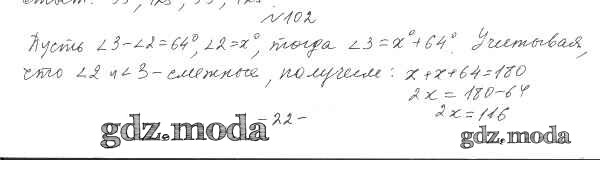 №102
Пусть ∠3-∠2=64°, ∠2=x°, тогда ∠3=x°+64°. Учитывая,
что ∠2 и ∠3-смежные, получим: x+x+64=180
2x=180-64
2x=116
-22-
gdz.moda
gdz.moda